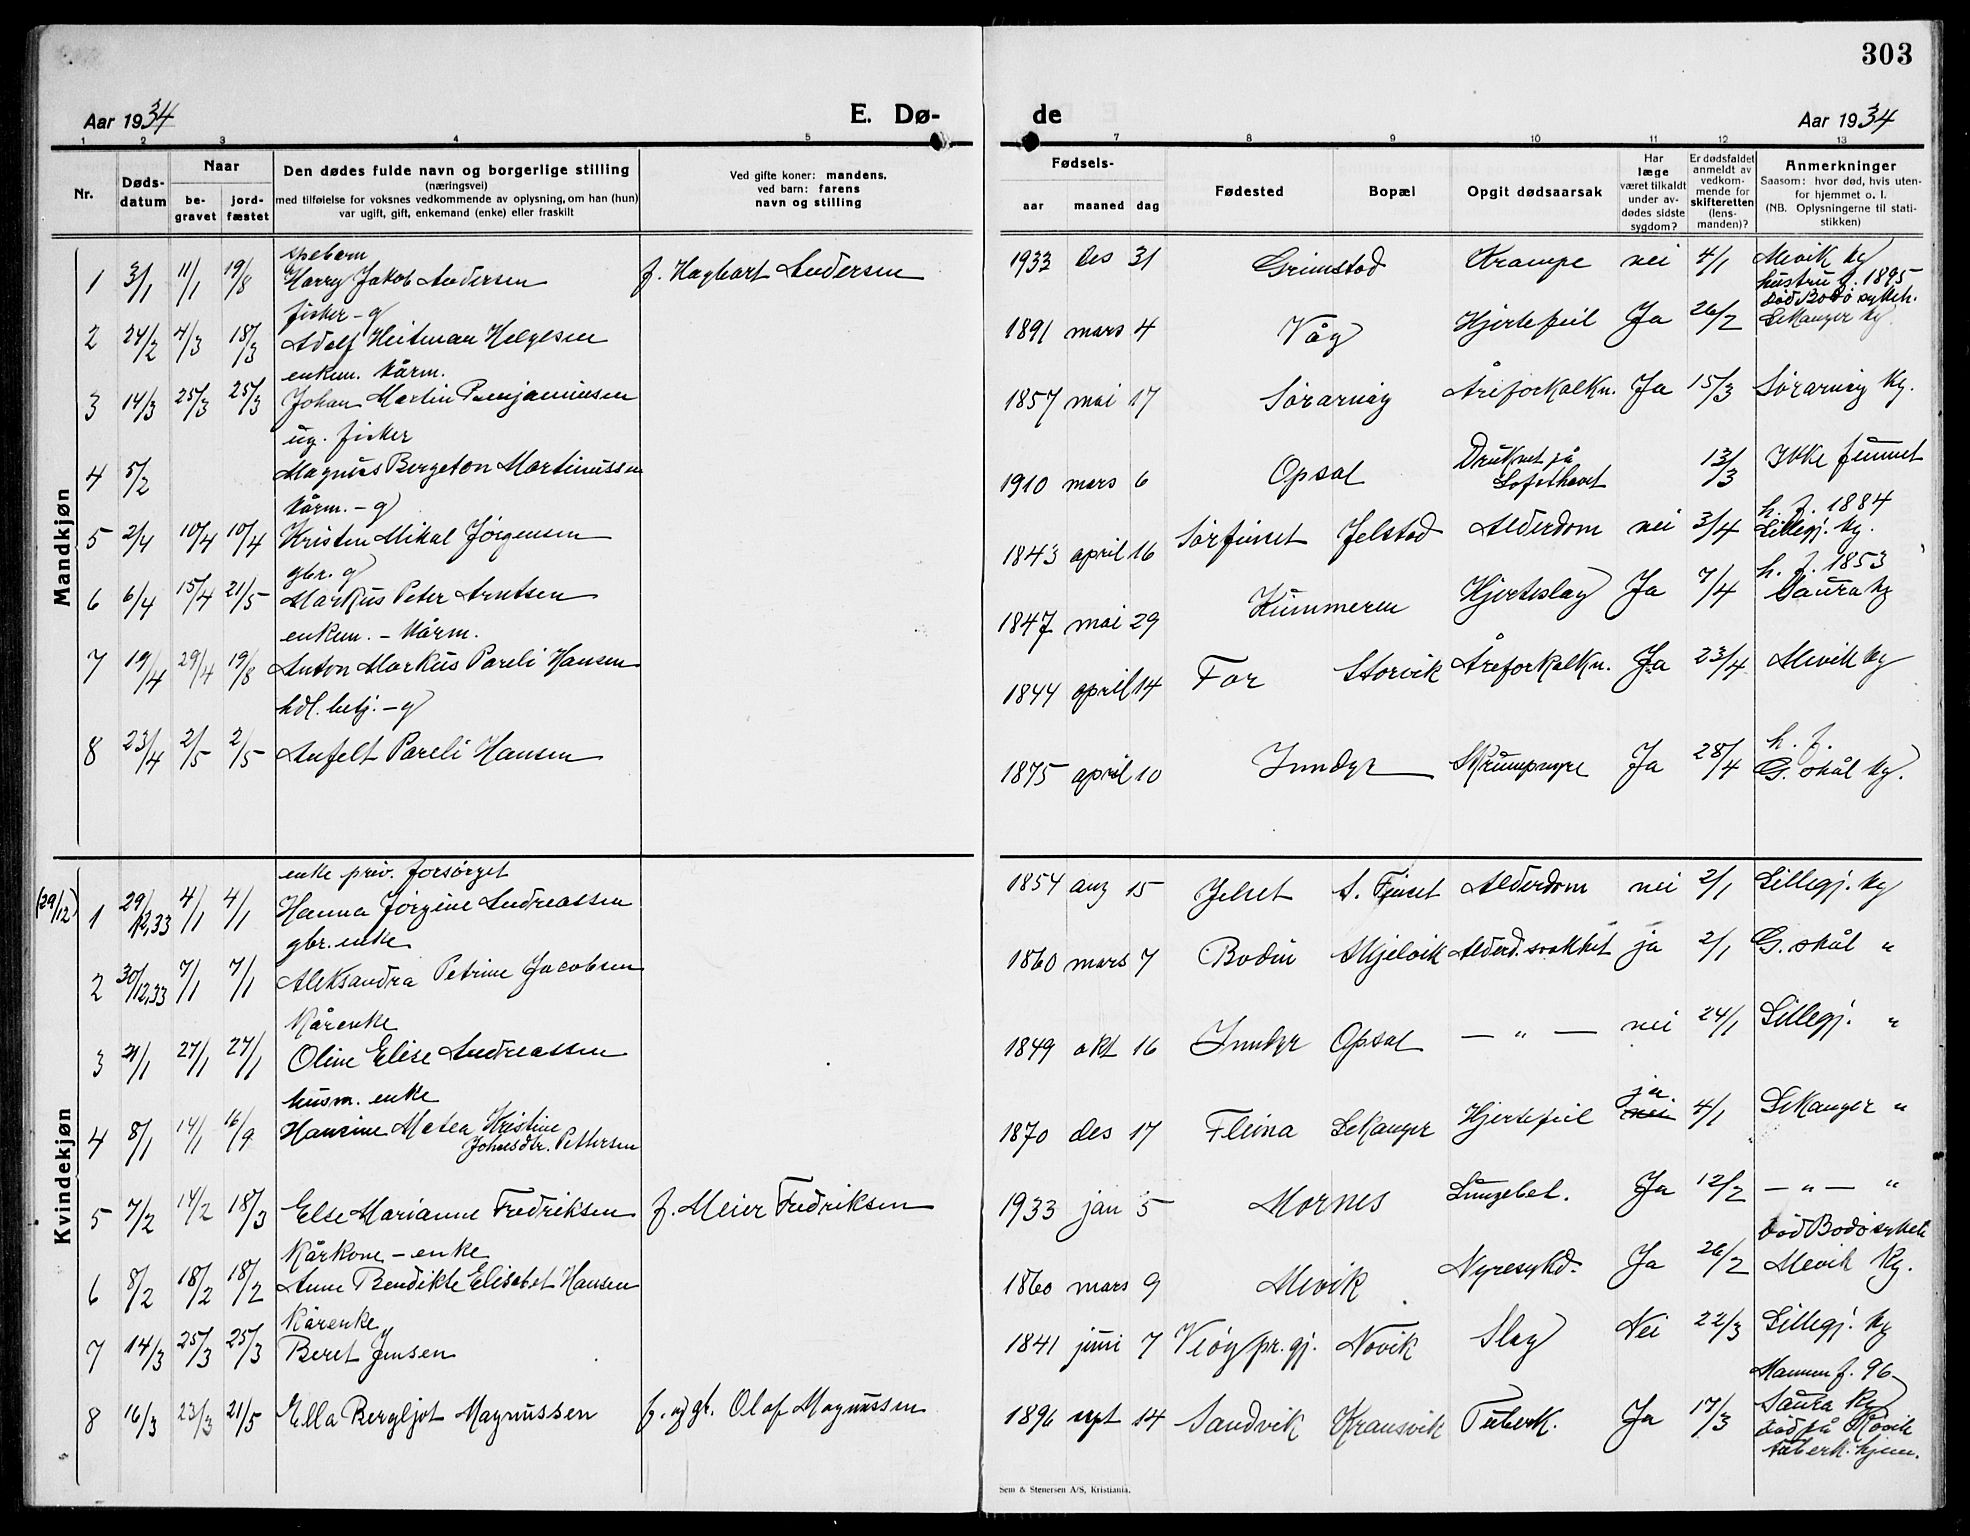 303
Aar 1934 E. Dø- de Aar 1934
1 2 3 4 5 7 8 9 10 11 12 13
Nr. Døds-datum Naar be-gravet jord-fæstet Den dødes fulde navn og borgerlige stilling (næringsvei) med tilføielse for voksnes vedkommende av oplysning, om han (hun) var ugift, gift, enkemand (enke) eller fraskilt Ved gifte koner: mandens, ved barn: farens navn og stilling Fødsels- aar maaned dag Fødested Bopæl Opgit dødsaarsak Har læge været tilkaldt under av-dødes sidste sygdom? Er dødsfaldet anmeldt av vedkom-mende for skifteretten (lens-manden)? Anmerkninger Saasom: hvor død, hvis uten-for hjemmet o. l. (NB. Oplysningerne til stati-stikken)
Mandkjøn
spebarn
1 3/1 11/1 19/8 Harry Jakob Andersen f. Hagbart Andersen 1933 des 31 Grimstad Krampe nei 4/1 Mevik kg
fisker - g hustru f. 1895 død Bodø sykeh.
2 24/2 4/3 18/3 Adolf Heitman Helgesen 1891 mars 4 Våg Hjertefeil Ja 26/2 Lekanger kg.
enkem. kårm.
3 14/3 25/3 25/3 Johan Martin Benjaminsen 1857 mai 17 Sørarnøy Åreforkalkn. Ja 15/3 Sørarnøy kg.
ug. fisker
4 5/2 Magnus Bergeton Martinussen 1910 mars 6 Opsal Druknet på Lofothavet 13/3 Ikke funnet
kårm. - g h. f. 1884
5 2/4 10/4 10/4 Kristen Mikal Jørgensen 1843 april 16 Sørfinset Jelstad Alderdom nei 3/4 Lillegj. kg.
gbr. g h. f. 1853
6 6/4 15/4 21/5 Markus Peter Arntsen 1847 mai 29 Kummeren Hjerteslag Ja 7/4 Saura kg
enkem. - kårm.
7 19/4 29/4 19/8 Anton Markus Pareli Hansen 1844 april 14 For Storvik Åreforkalkn. Ja 23/4 Mevik kg
hdl. betj. - g h. f.
8 23/4 2/5 2/5 Anfelt Pareli Hansen 1875 april 10 Inndyr Skrumpnyre Ja 28/4 G. skål kg.
Kvindekjøn
enke priv. forsørget
(29/12) 1 29/12,33 4/1 4/1 Hanna Jørgine Andreassen 1854 aug 15 Jelset S. Finset Alderdom nei 2/1 Lillegj. kg
gbr. enke
2 30/12,33 7/1 7/1 Aleksandra Petrine Jacobsen 1860 mars 7 Bodin Skjelvik Alderd. svakhet ja 2/1 G. skål "
Kårenke
3 21/1 27/1 27/1 Oline Elise Andreassen 1849 okt 16 Inndyr Opsal — " — nei 24/1 Lillegj. "
husm. enke
4 8/1 14/1 16/9 Hansine Matea Kristine Johnsdtr. Pettersen 1870 des 17 Fleina Lekanger Hjertefeil nei ja 4/1 Lekanger "
5 7/2 14/2 18/3 Else Marianne Fredriksen f. Meier Fredriksen 1933 jan 5 Mornes Lungebet. Ja 12/2 — " — "
Kårkone - enke død Bodø sykeh
6 8/2 18/2 18/2 Anne Bendikte Elisabet Hansen 1860 mars 9 Mevik Nyresykd. Ja 26/2 Mevik kg.
Kårenke
7 14/3 25/3 25/3 Beret Jensen 1841 juni 7 Viøy pr. gj. Novik Slag Nei 22/3 Lillegj. kg
8 16/3 23/3 21/5 Ella Bergljot Magnussen f. og gb. Olaf Magnussen 1896 sept 14 Sandvik Kransvik Tuberk. Ja 17/3 Mannen f. 96 Saura kg død på Røvik tuberk. hjem.
Sem & Stenersen A/S, Kristiania.